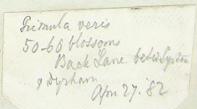 Primula veris
50-60 blossoms
Back Lane betw. Syston
& Dyrham
Apr. 27. '82